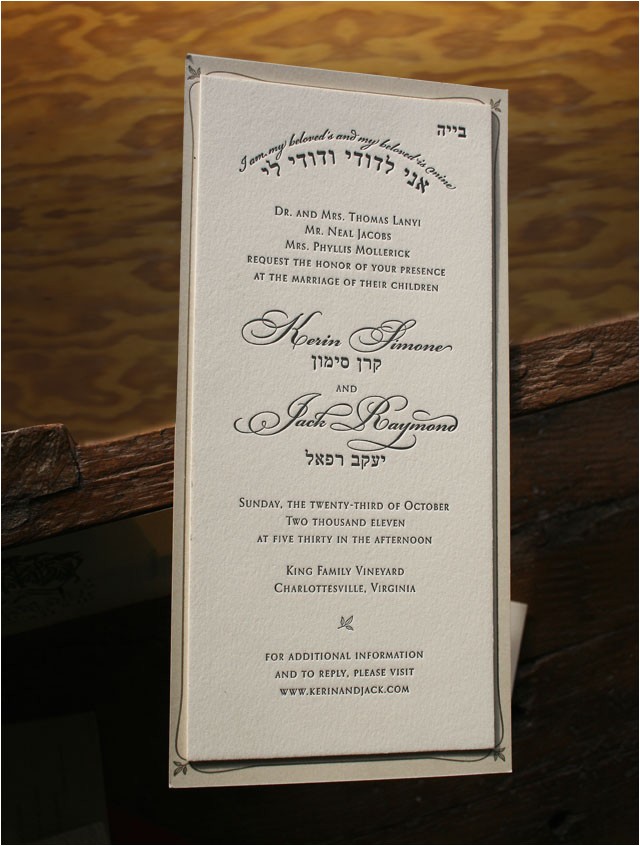 בייה
I am my beloved's and my beloved is mine
אני לדודי ודודי לי
Dr. and Mrs. Thomas Lanyi
Mr. Neal Jacobs
Mrs. Phyllis Mollerick
request the honor of your presence
at the marriage of their children
Kerin Simone
קרן סימון
and
Jack Raymond
יעקב רפאל
Sunday, the twenty-third of October
Two thousand eleven
at five thirty in the afternoon
King Family Vineyard
Charlottesville, Virginia
for additional information
and to reply, please visit
www.kerinandjack.com